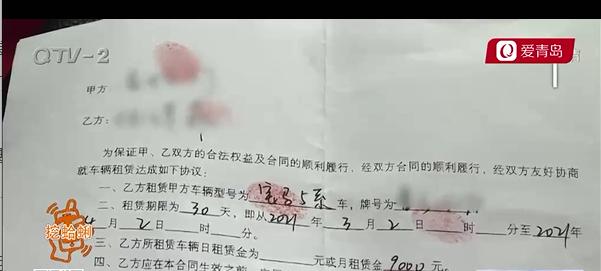 QTV-2
爱青岛
甲方：
乙方：
为保证甲、乙双方的合法权益及合同的顺利履行，经双方合同的顺利履行，经双方友好协商
就车辆租赁达成如下协议：
一、乙方租赁甲方车辆型号为 宝马5系 车，牌号为
二、租赁期限为 30 天，即从2021 年 3 月 2 日 时 分至 2021年
4 月 2 日 时 分。
三、乙方所租赁车辆日租赁金为 元或月租赁金 9000 元。
四、乙方应在本合同生效之前
挖蛤蜊